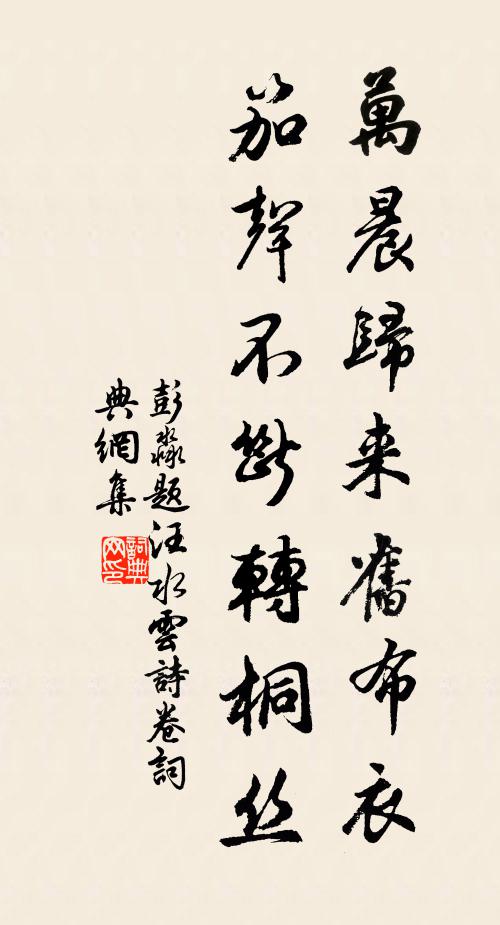 萬晨歸来舊布衣
笳聲不斷轉桐丝
彭淼題汪水雲詩卷詞
典網集
詞典网印